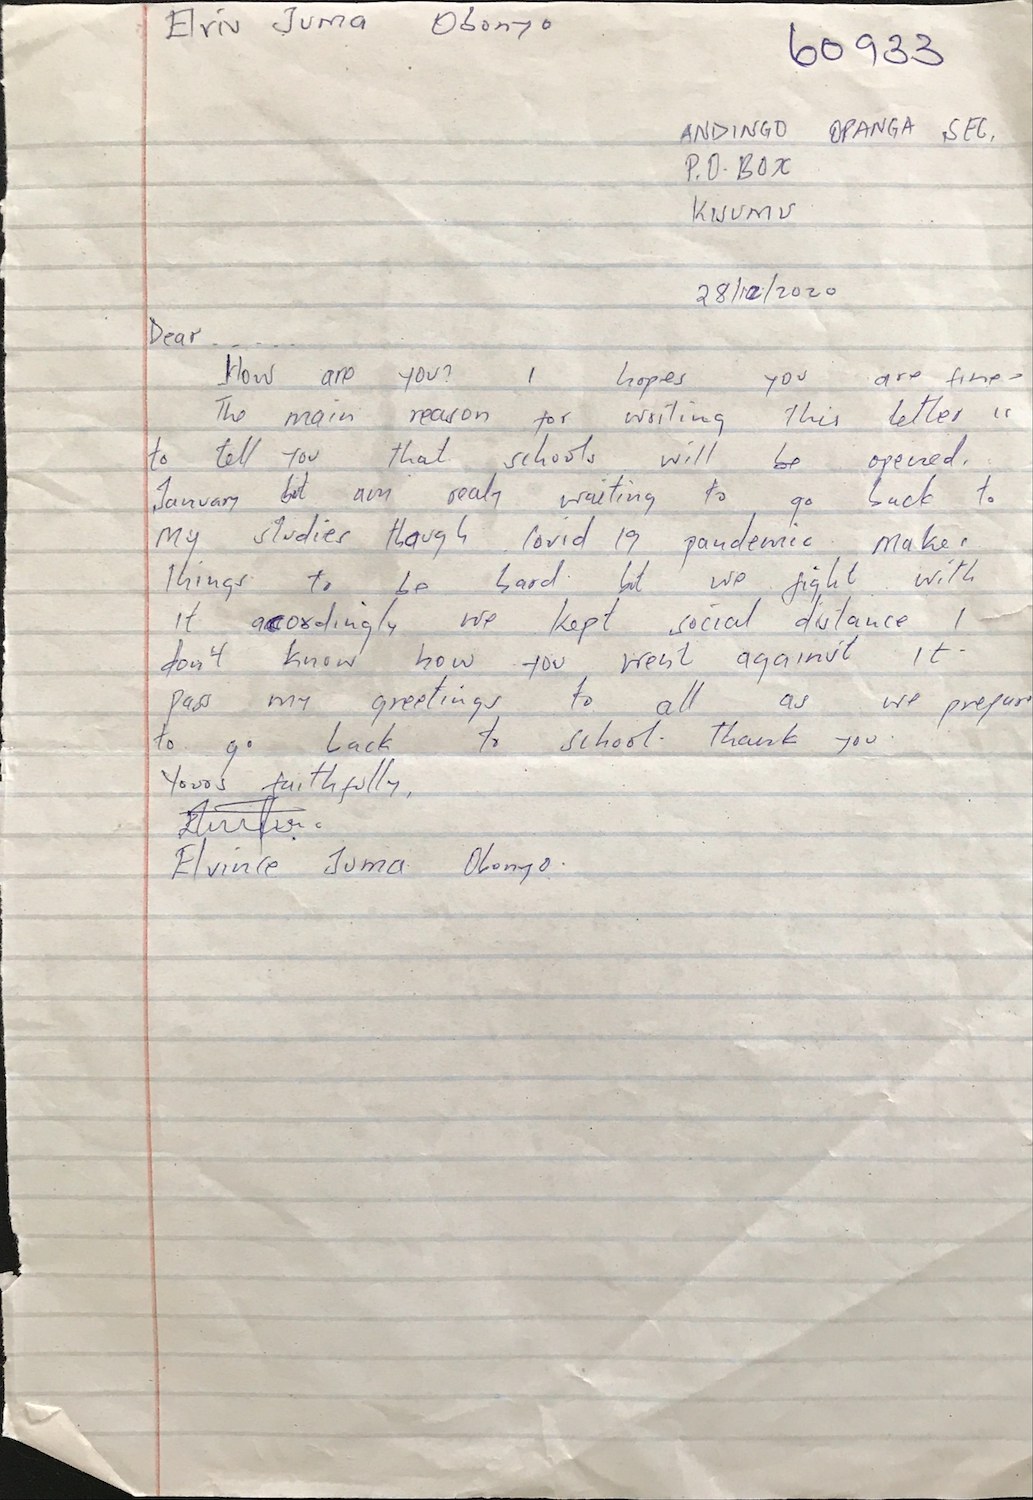 Elvin Juma Obonyo
60933
ANDINGO OPANGA SEC.
P.O. BOX
KISUMU
28/12/2020
Dear ......
How are you? I hopes you are fine.
The main reason for writing this letter is
to tell you that schools will be opened.
January but am realy waiting to go back to
my studies though Covid 19 pandemic makes
things to be hard but we fight with
it accordingly we kept social distance I
don't know how you went against it.
pass my greetings to all as we prepare
to go back to school. thank you.
Yours faithfully,
Elvince Juma Obonyo.